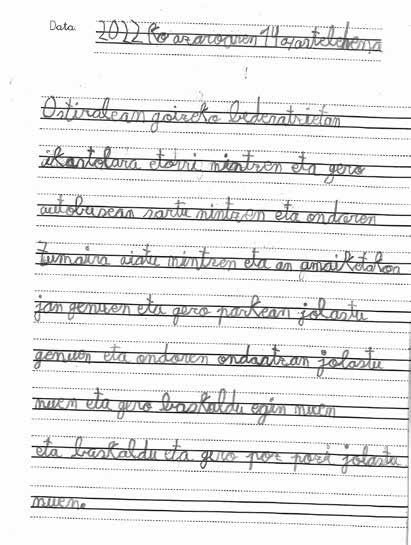 Data: 2022 ko azaroaren 14a, astelehena
Ostiralean goizeko bederatzietan
ikastolara etorri nintzen eta gero
autobusean sartu nintzen eta ondoren
Zumaira aiatu nintzen eta an amaiketakoa
jan genuen eta gero parkean jolastu
genuen eta ondoren ondartzan jolastu
nuen eta gero baskaldu egin nuen
eta baskaldu eta gero por pozi jolastu
nuen.